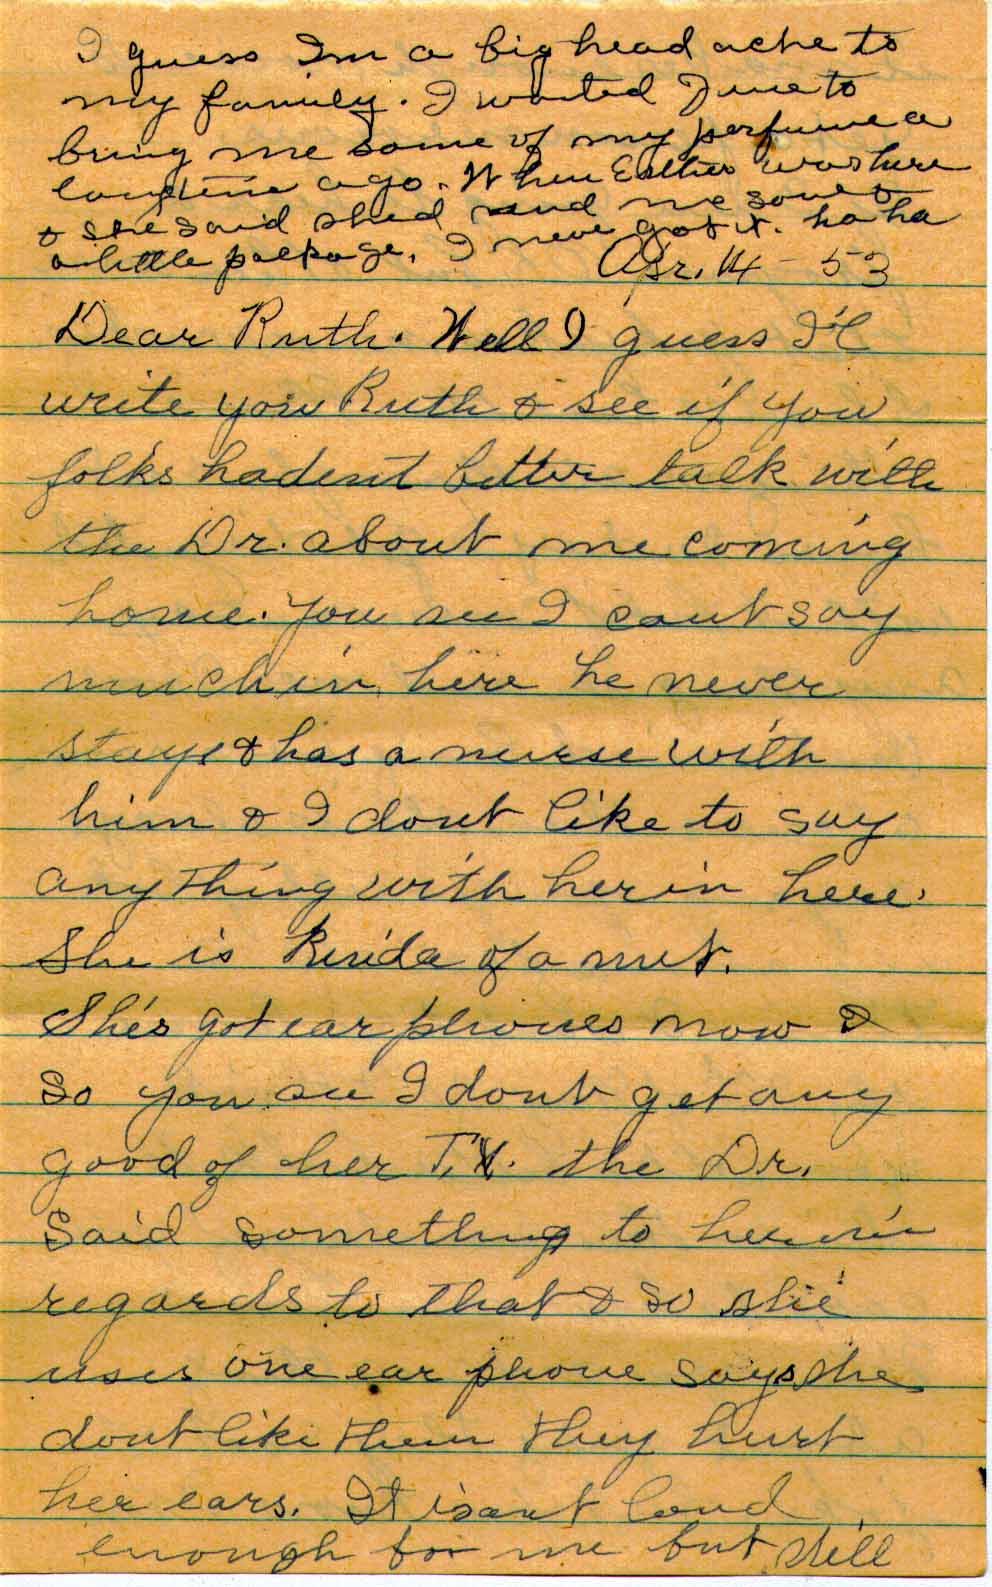 I guess Im a big head ache to
my family. I wanted June to
bring me some of my perfume a
longtime ago. When Esther was here
& she said shed send me some &
a little package. I never got it. ha ha
Apr. 14 - 53
Dear Ruth. Well I guess I'l
write you Ruth & see if you
folks hadent better talk with
the Dr. about me coming
home. You see I cant say
much in here he never
stays & has a nurse with
him & I dont like to say
anything with her in here.
She is kinda of a nut.
She's got ear phones now &
so you see I dont get any
good of her T.V. the Dr.
said something to her in
regards to that & so she
uses one ear phone says she
dont like them they hurt
her ears. It isant loud
enough for me but still